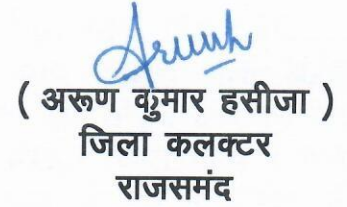 ( अरूण कुमार हसीजा )
जिला कलक्टर
राजसमंद